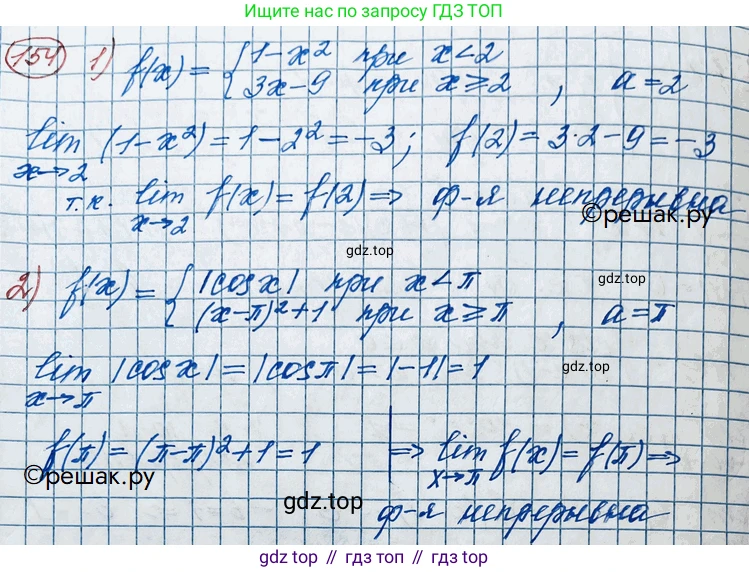 Ищи решение по запросу ГДЗ ТОП
154 1) f(x) = { 1 - x² при x < 2
3x - 9 при x ⩾ 2 , a = 2
lim (1 - x²) = 1 - 2² = -3; f(2) = 3·2 - 9 = -3
x→2
т.к. lim f(x) = f(2) ⇒ ф-я непрерывна
x→2
©решак.ру
gdz.top
gdz.top
2) f(x) = { |cos x| при x < π
(x-π)² + 1 при x ⩾ π , a = π
lim |cos x| = |cos π| = |-1| = 1
x→π
gdz.top
f(π) = (π-π)² + 1 = 1 | ⇒ lim f(x) = f(π) ⇒
x→π
©решак.ру
gdz.top
ф-я непрерывна
gdz.top // гдз топ // gdz.top // гдз.топ